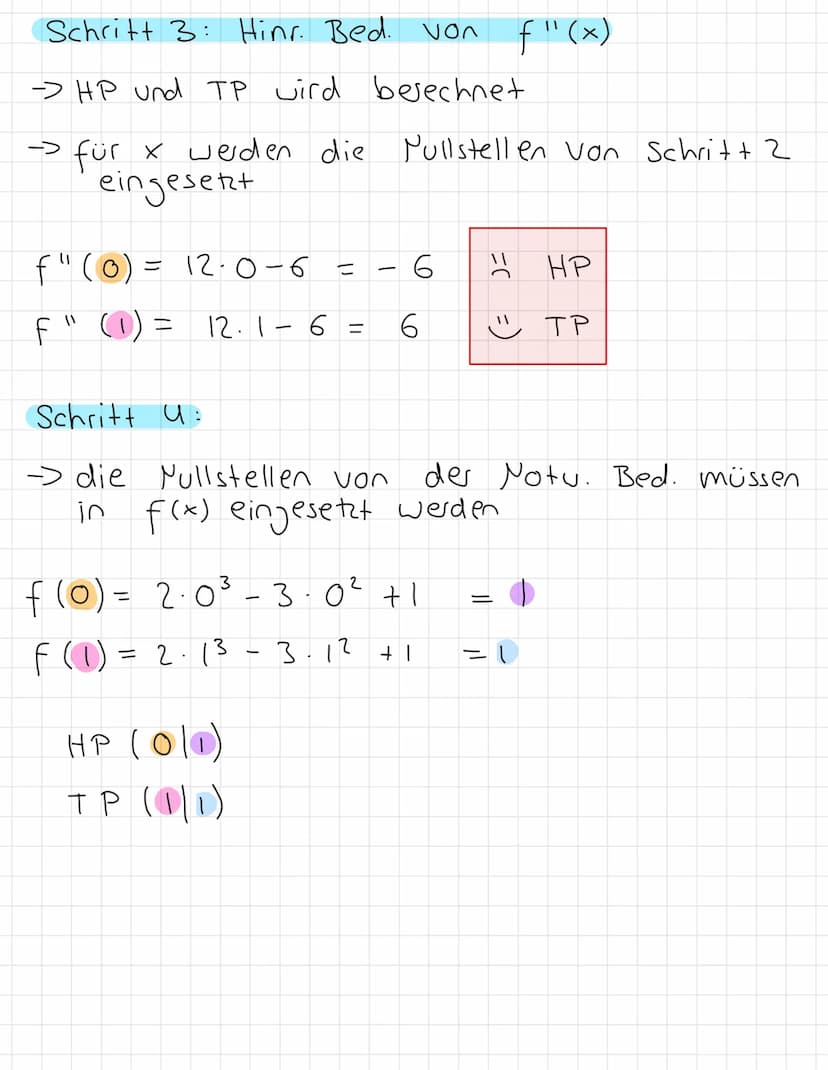 Schritt 3: Hinr. Bed. von f"(x)
-> HP und TP wird berechnet
-> für x werden die Nullstellen von Schritt 2
eingesetzt
f"(0) = 12·0-6 = -6 HP
f"(1) = 12·1-6 = 6 TP
Schritt 4:
-> die Nullstellen von der Notw. Bed. müssen
in f(x) eingesetzt werden
f(0) = 2·0³ - 3·0² +1 = 1
f(1) = 2·1³ - 3·1² +1 = 1
HP (0|1)
TP (1|1)